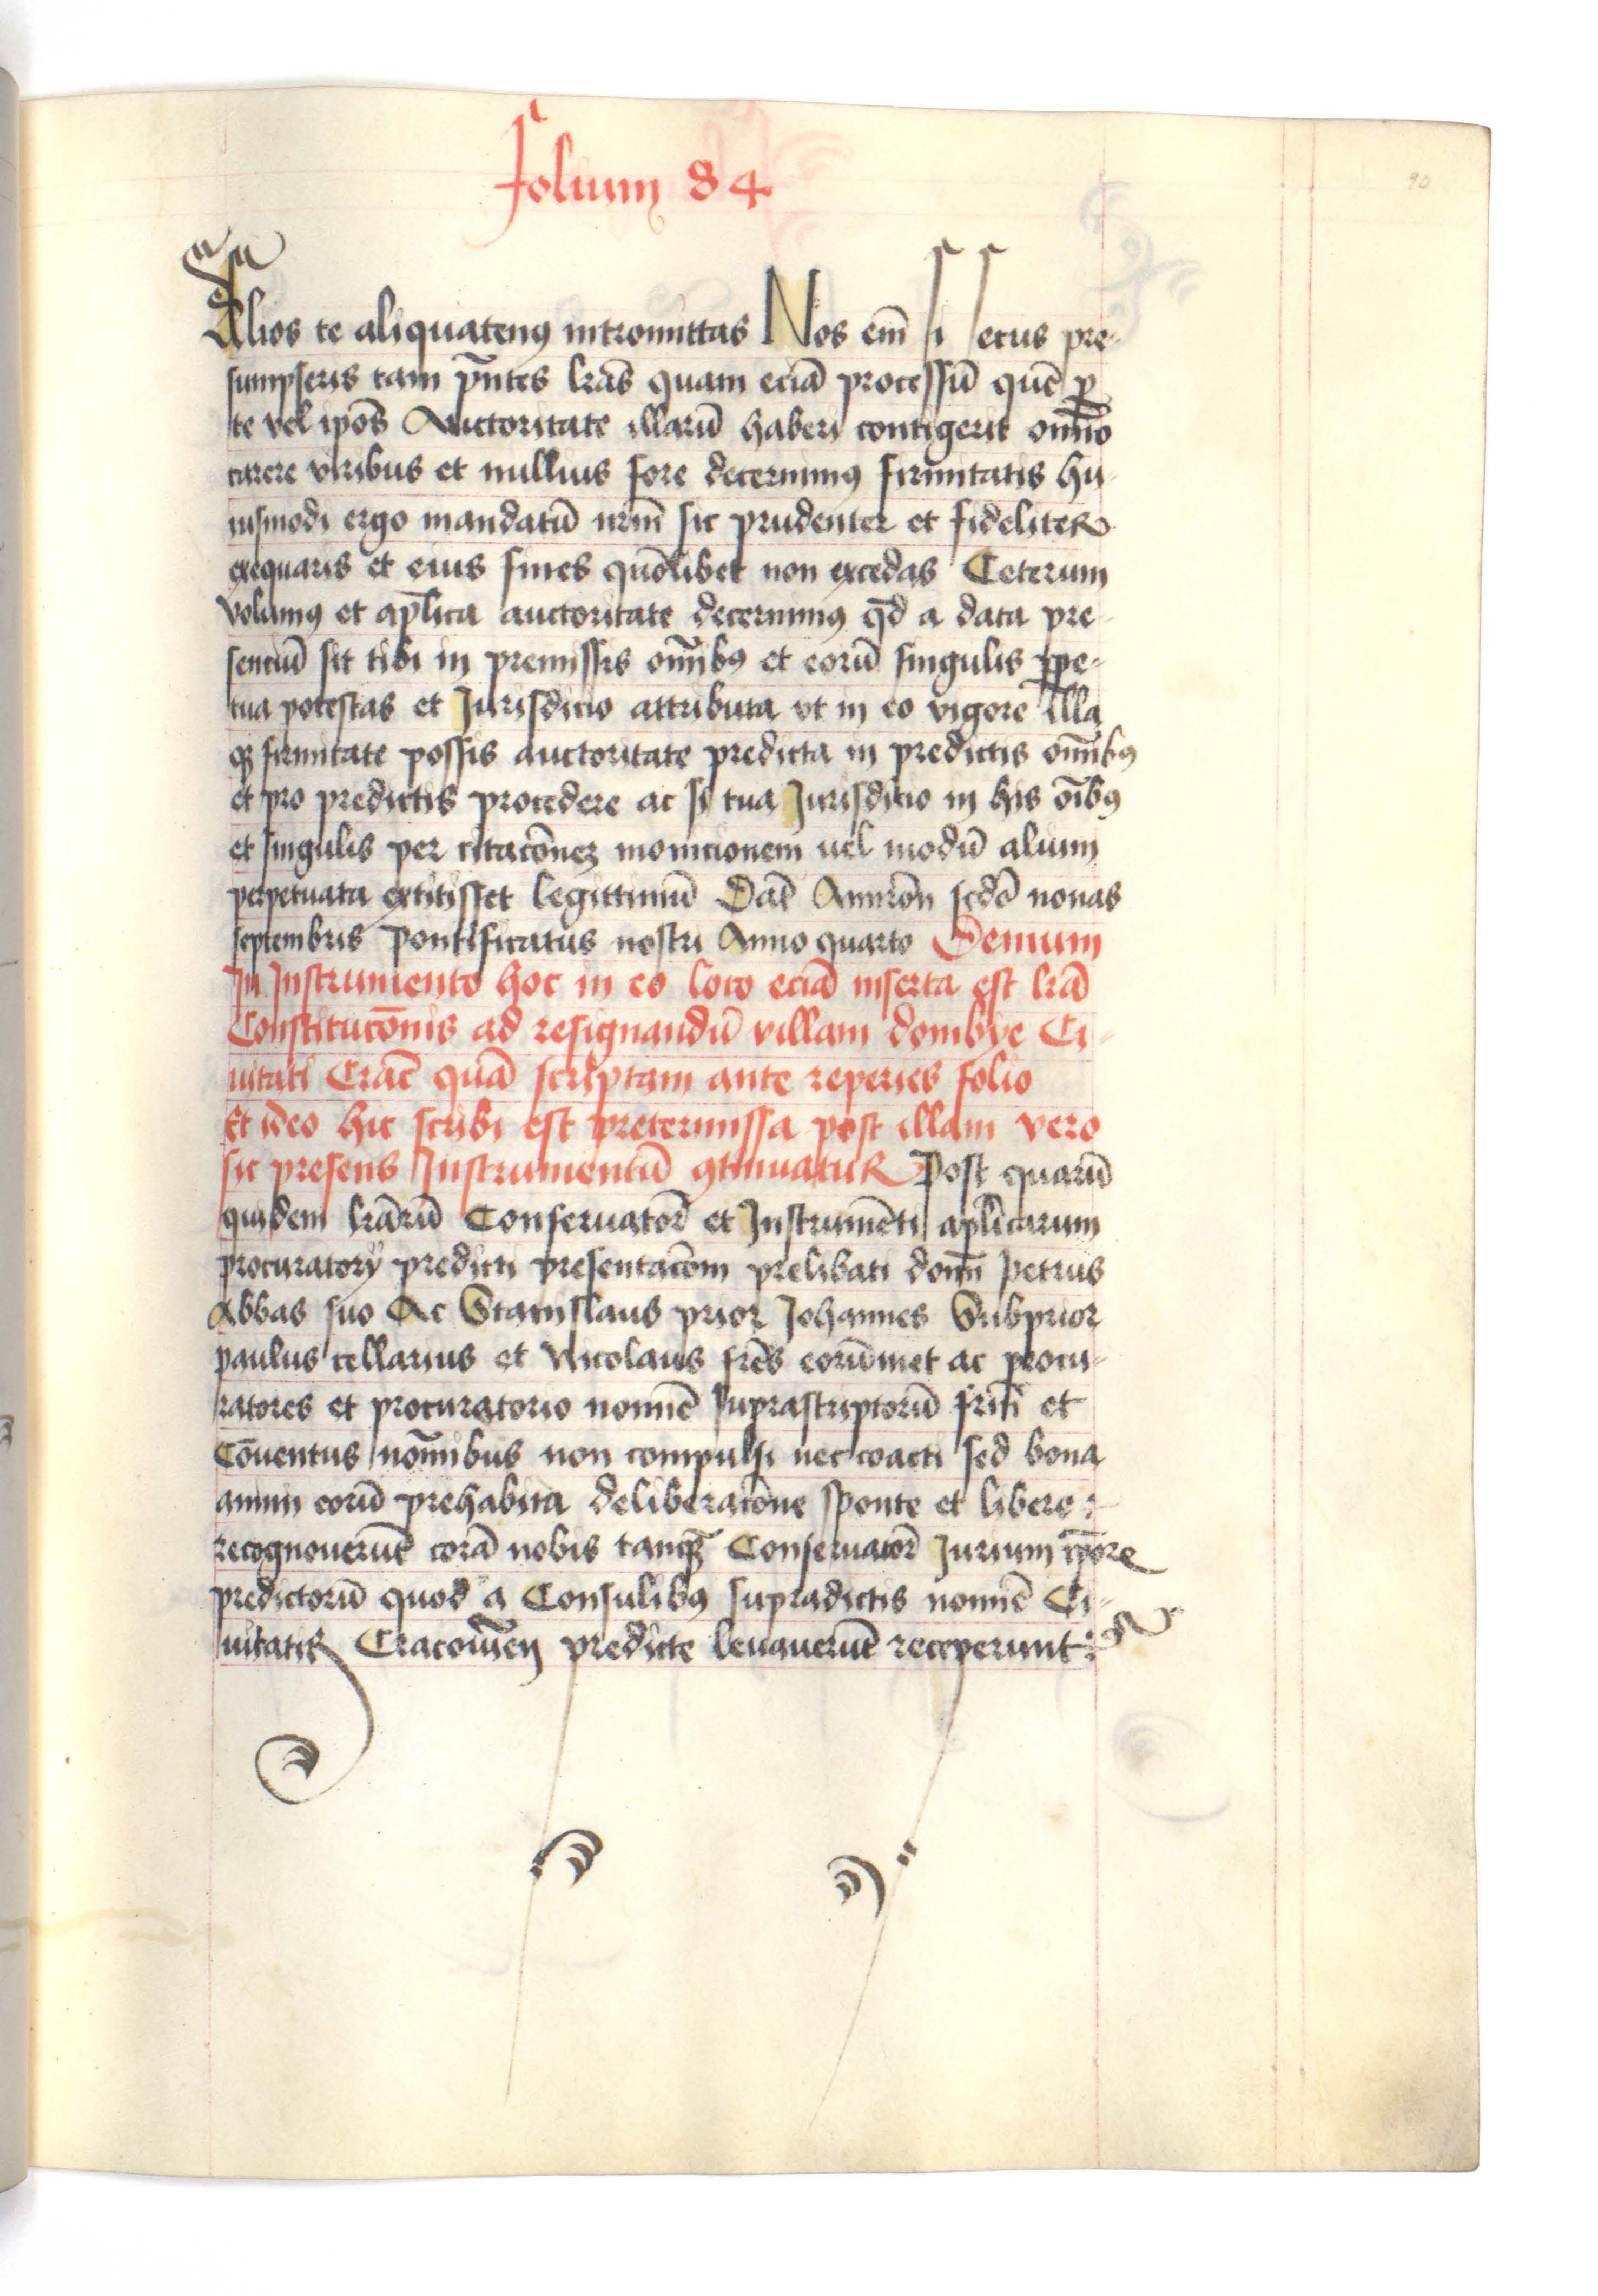 folium 84
90
Alios te aliquatenꝯ intromittas Nos em̄ si secus pre-
sumpseris tam pn̄tes lrās quam eciā processū quē ꝑ
te vel ipōs Auctoritate illarū haberi contigerit om̄no
carere viribus et nullius fore decernimꝯ firmitatis hu-
iusmodi ergo mandatū nrm̄ sic prudenter et fideliter
exequaris et eius fines quōlibet non excedas Ceterum
volumꝯ et apl̄ica auctoritate decernimꝯ qd̄ a data pre-
senciū sit tibi in premissis om̄ibꝯ et eorū singulis ꝑpe-
tua potestas et Jurisdicio attributa vt in eo vigore illa
qꝫ firmitate possis auctoritate predicta in predictis om̄ibꝯ
et pro predictis procedere ac si tua Jurisdicio in his oībꝯ
et singulis per citacōneꝫ monicionem uel modū alium
perpetuata extitisset legittimū Dat̄ Auinion̄ scdō nonas
septembris Pontificatus nostri Anno quarto Demum
In Instrumento hoc in eo loco eciā inserta est lrā
Constitucōnis ad resignandū villam dombye Ci-
uitati Crac̄ quā scriptam ante reperies folio
Et ideo hic scribi est pretermissa post illam vero
sic presens Instrumentū ꝯtinuatur Post quarū
quidem lrārū Conseruatorͥ et Instrumēti apl̄icarum
procuratorij predicti presentacōem prelibati domī Petrus
Abbas suo Ac Stanislaus prior Johannes Subprior
paulus cellarius et Nicolaus frēs eorūmet ac procu-
ratores et procuratorio nomīe suprascriptorū frm̄ et
Cōuentus nomībus non compulsi nec coacti sed bona
animi eorū prehabita deliberacōne sponte et libere :-
recognouerūt corā nobis tanqꝫ Conseruatorͥ Jurium ipōr̄
predictorū quod a Consulibꝯ supradictis nomīe Ci-
uitatis Cracouien̄ predicte leuauerūt receperunt :